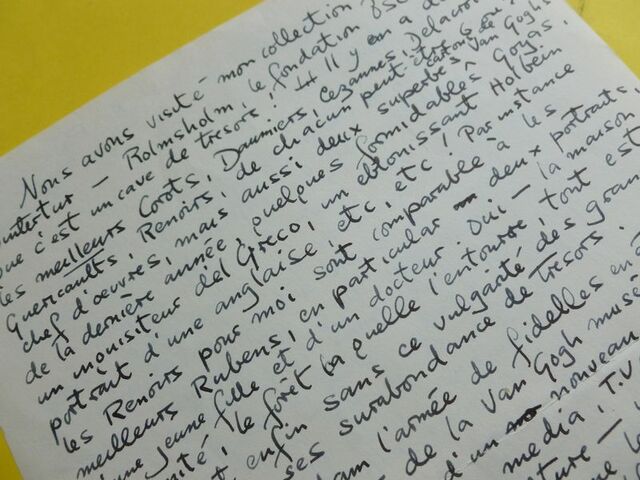 Nous avons visité mon collection
Rolmsholm, le fondation
que c'est un cave de tresors! Il y en a
les meilleurs Corots, Daumiers, Cezannes, Delacro
Guericaults, Renoirs, de chacun peut être
chef d'œuvres, mais aussi deux superbes Van Gogh
de la dernière année, quelques formidables Goyas,
un inquisiteur del Greco, un eblouissant Holbein
portrait d'une anglaise, etc, etc, Par instance
les Renoirs pour moi sont comparable à les
meilleurs Rubens, en particular deux portraits,
d'une jeune fille et d'un docteur. Oui - la maison
le forêt la quelle l'entourre, tout est
enfin sans ce vulgarité des gran
ses surabondance de Tresors.
l'armée de fidelles en
de la Van Gogh muse
d'un nouveau
media, T.V.